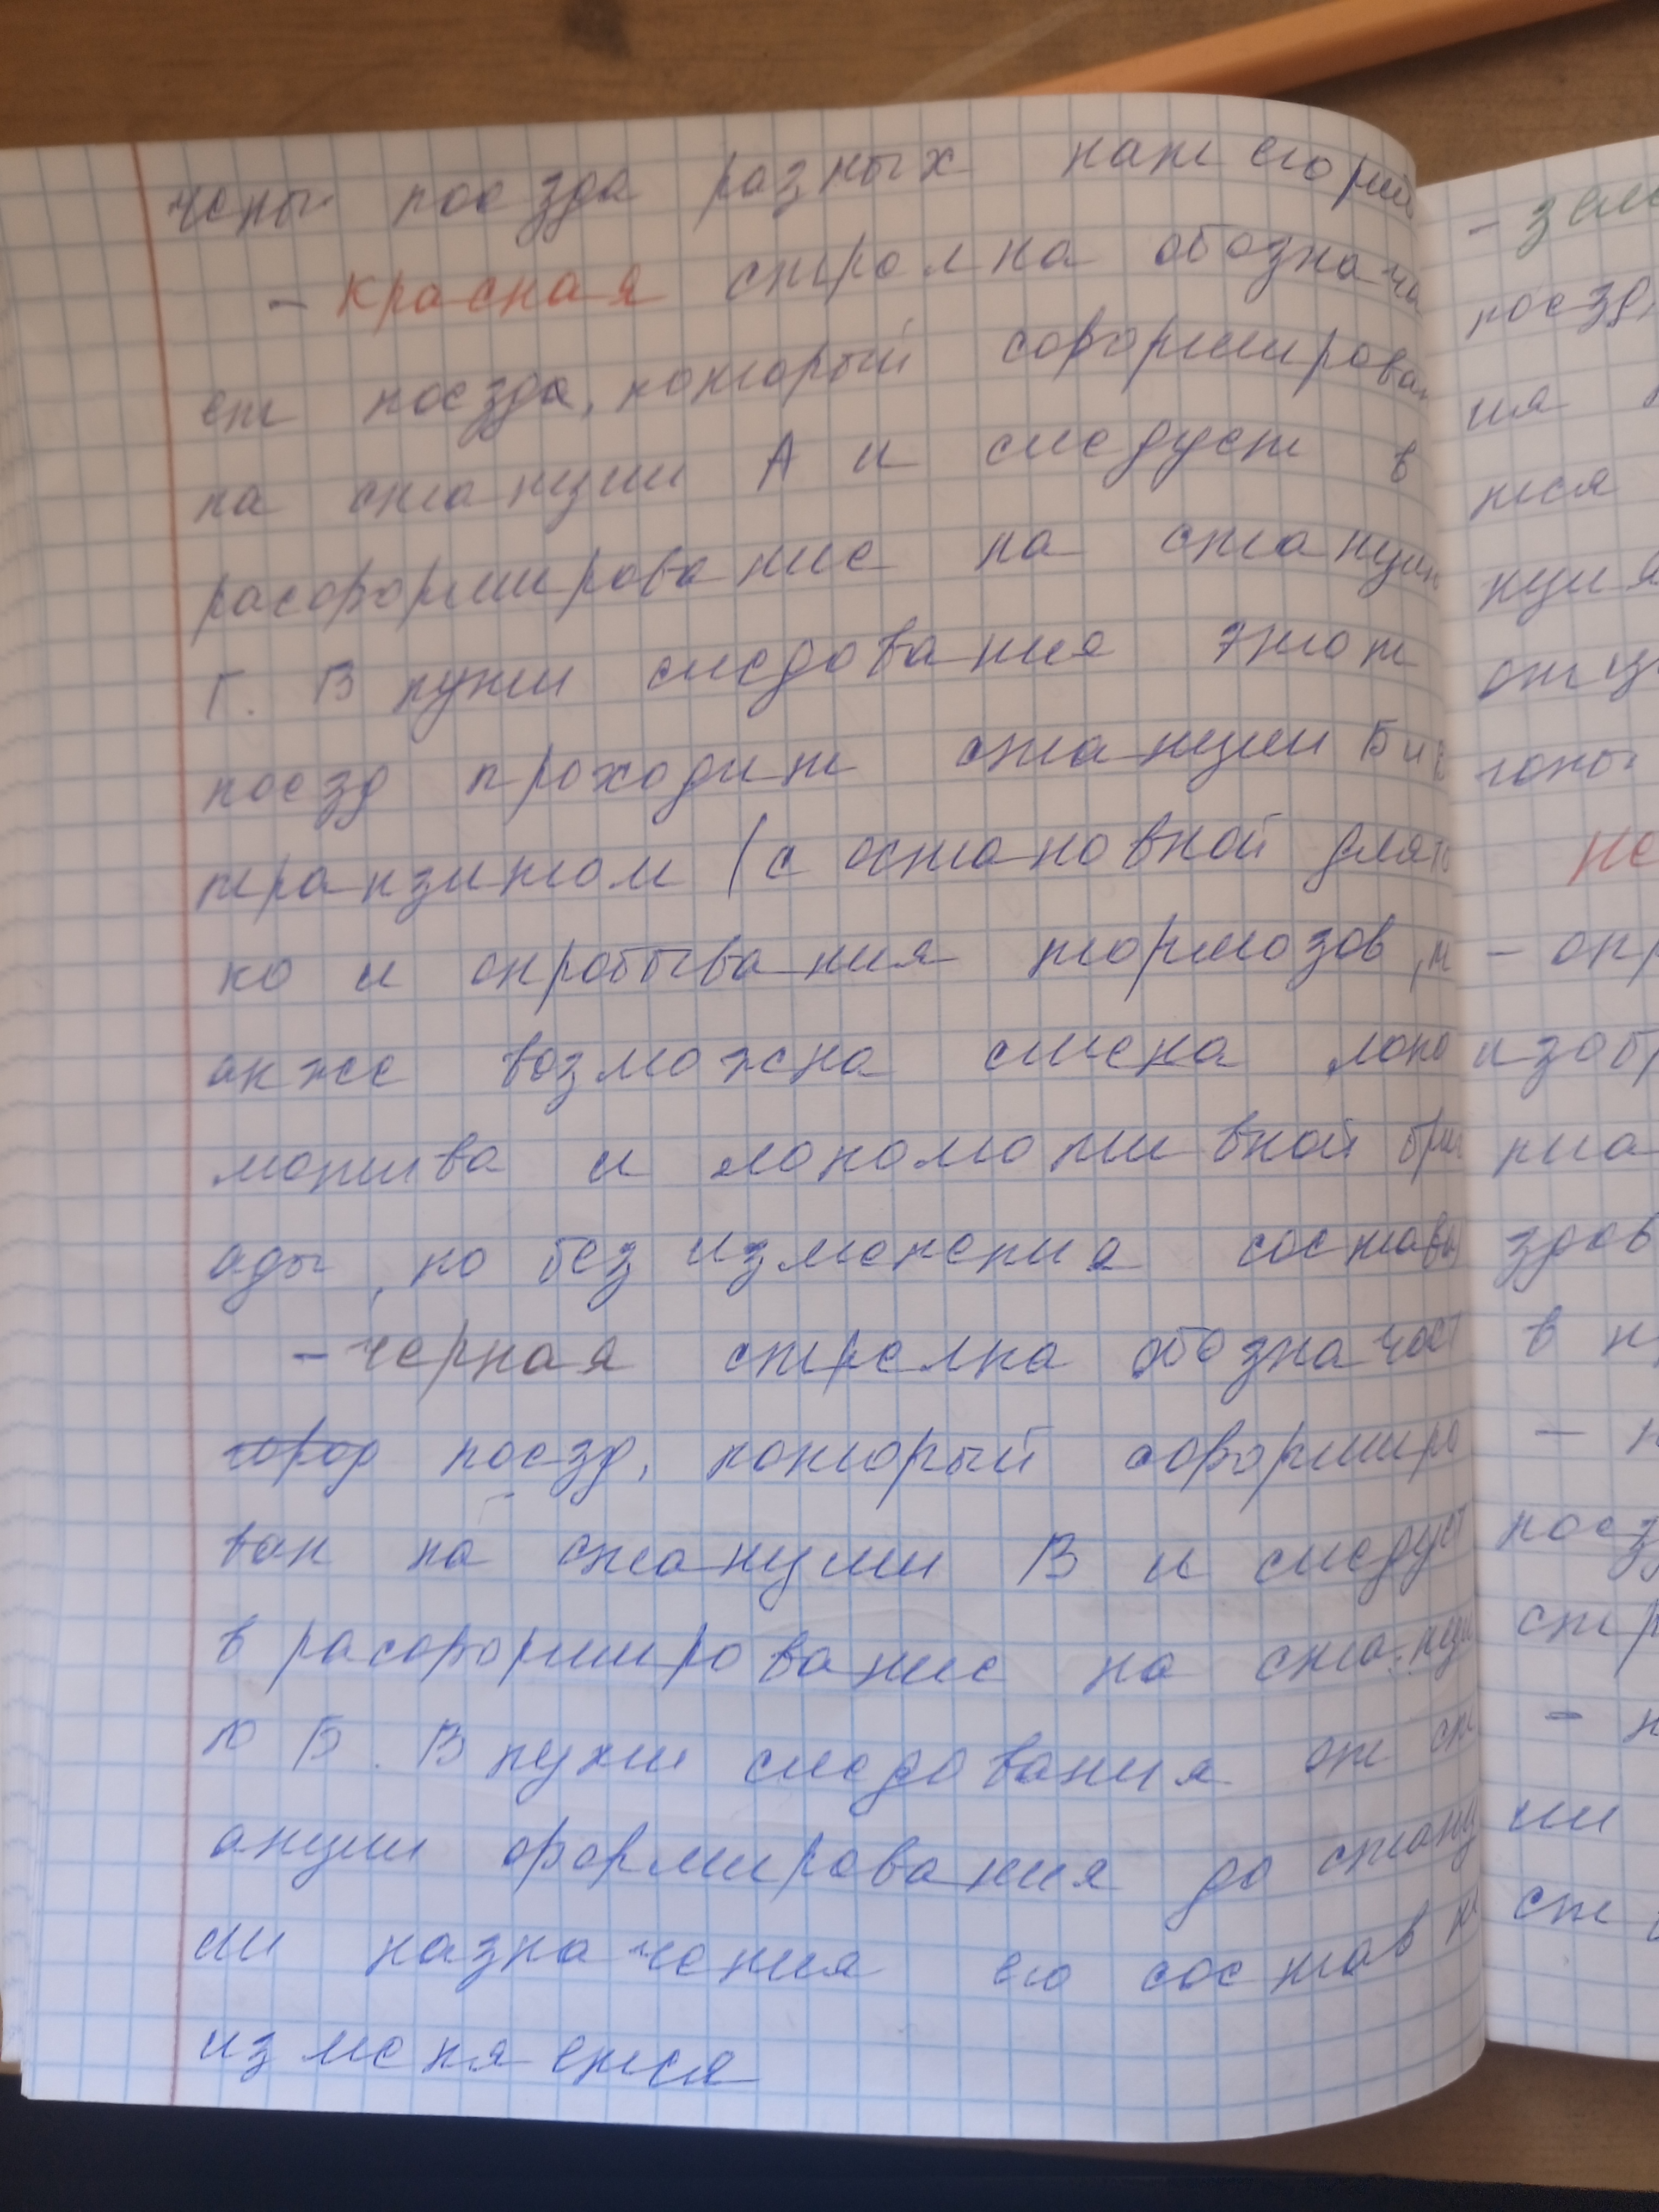 чены поезда разных категорий
- красная стролка обознача
ет поезда, который сформирован
на станции А и следует в
расформирование на станции
Г. В пути следования этот
поезд проходит станции Б и В
транзитом (с остановкой для то
ко и опробывания тормозов, т
акже возможна смена локо
мотива и локомотивной бриг
ады, но без изменения состава
- черная стрелка обозначает
город поезд, который сформиро
ван на станции В и следует
в расформирование на станци
ю Б. В пути следования от ст
анции формирования до станц
ии назначения его состав не
изменяется
- зеле
поезд
ния
тся
нция
отце
гоны
не
- опр
изобр
в н
поез
стр
ии